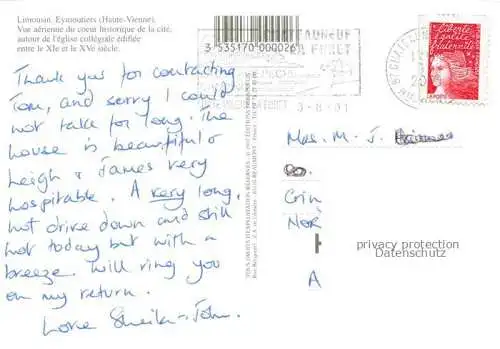 Limousin. Eymoutiers (Haute-Vienne).
Vue aérienne du coeur historique de la cité,
autour de l'église collégiale édifiée
entre le XIe et le XVe siècle.
3 535170 000026
CHATEAUNEUF
LA FORET
3-8-01
Liberté
égalité
fraternité
Thank you for contacting
Tom, and sorry I could
not talk for long. The
house is beautiful &
Leigh & James very
hospitable. A very long
hot drive down and still
hot today but with a
breeze. Will ring you
on my return.
Love Sheila & John.
Mrs. M. J.
Crin
Nor
A
privacy protection
Datenschutz